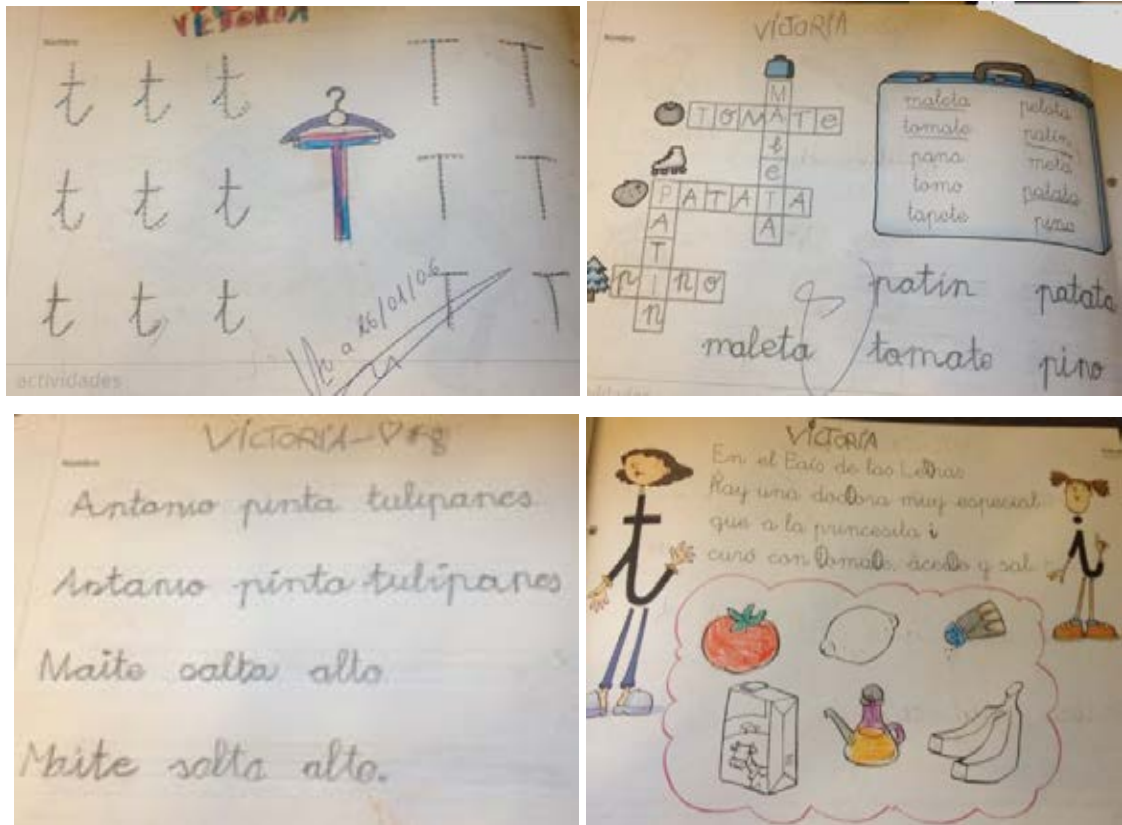 VICTORIA
Nombre
t t t T T
t t t T T
t t t T T
26/01/06
actividades
VICTORIA
Nombre
TOMATE
MALETA
PATATA
PATIN
pino
maleta pelota
tomate patín
pana meta
tomo patata
tapete pino
patín patata
maleta tomate pino
VICTORIA
Nombre
Antonio pinta tulipanes
Antonio pinta tulipanes
Maite salta alto
Maite salta alto.
VICTORIA
En el País de las Letras
hay una doctora muy especial
que a la princesita i
curó con tomate, aceite y sal.